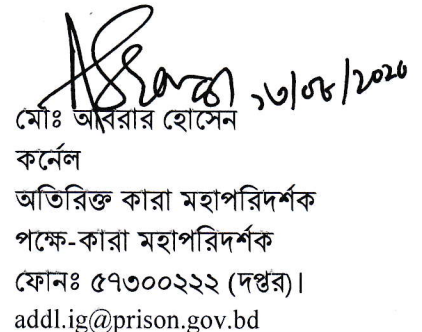 ১৩/০৮/২০২০
মোঃ আবরার হোসেন
কর্নেল
অতিরিক্ত কারা মহাপরিদর্শক
পক্ষে-কারা মহাপরিদর্শক
ফোনঃ ৫৭৩০০২২২ (দপ্তর)।
addl.ig@prison.gov.bd